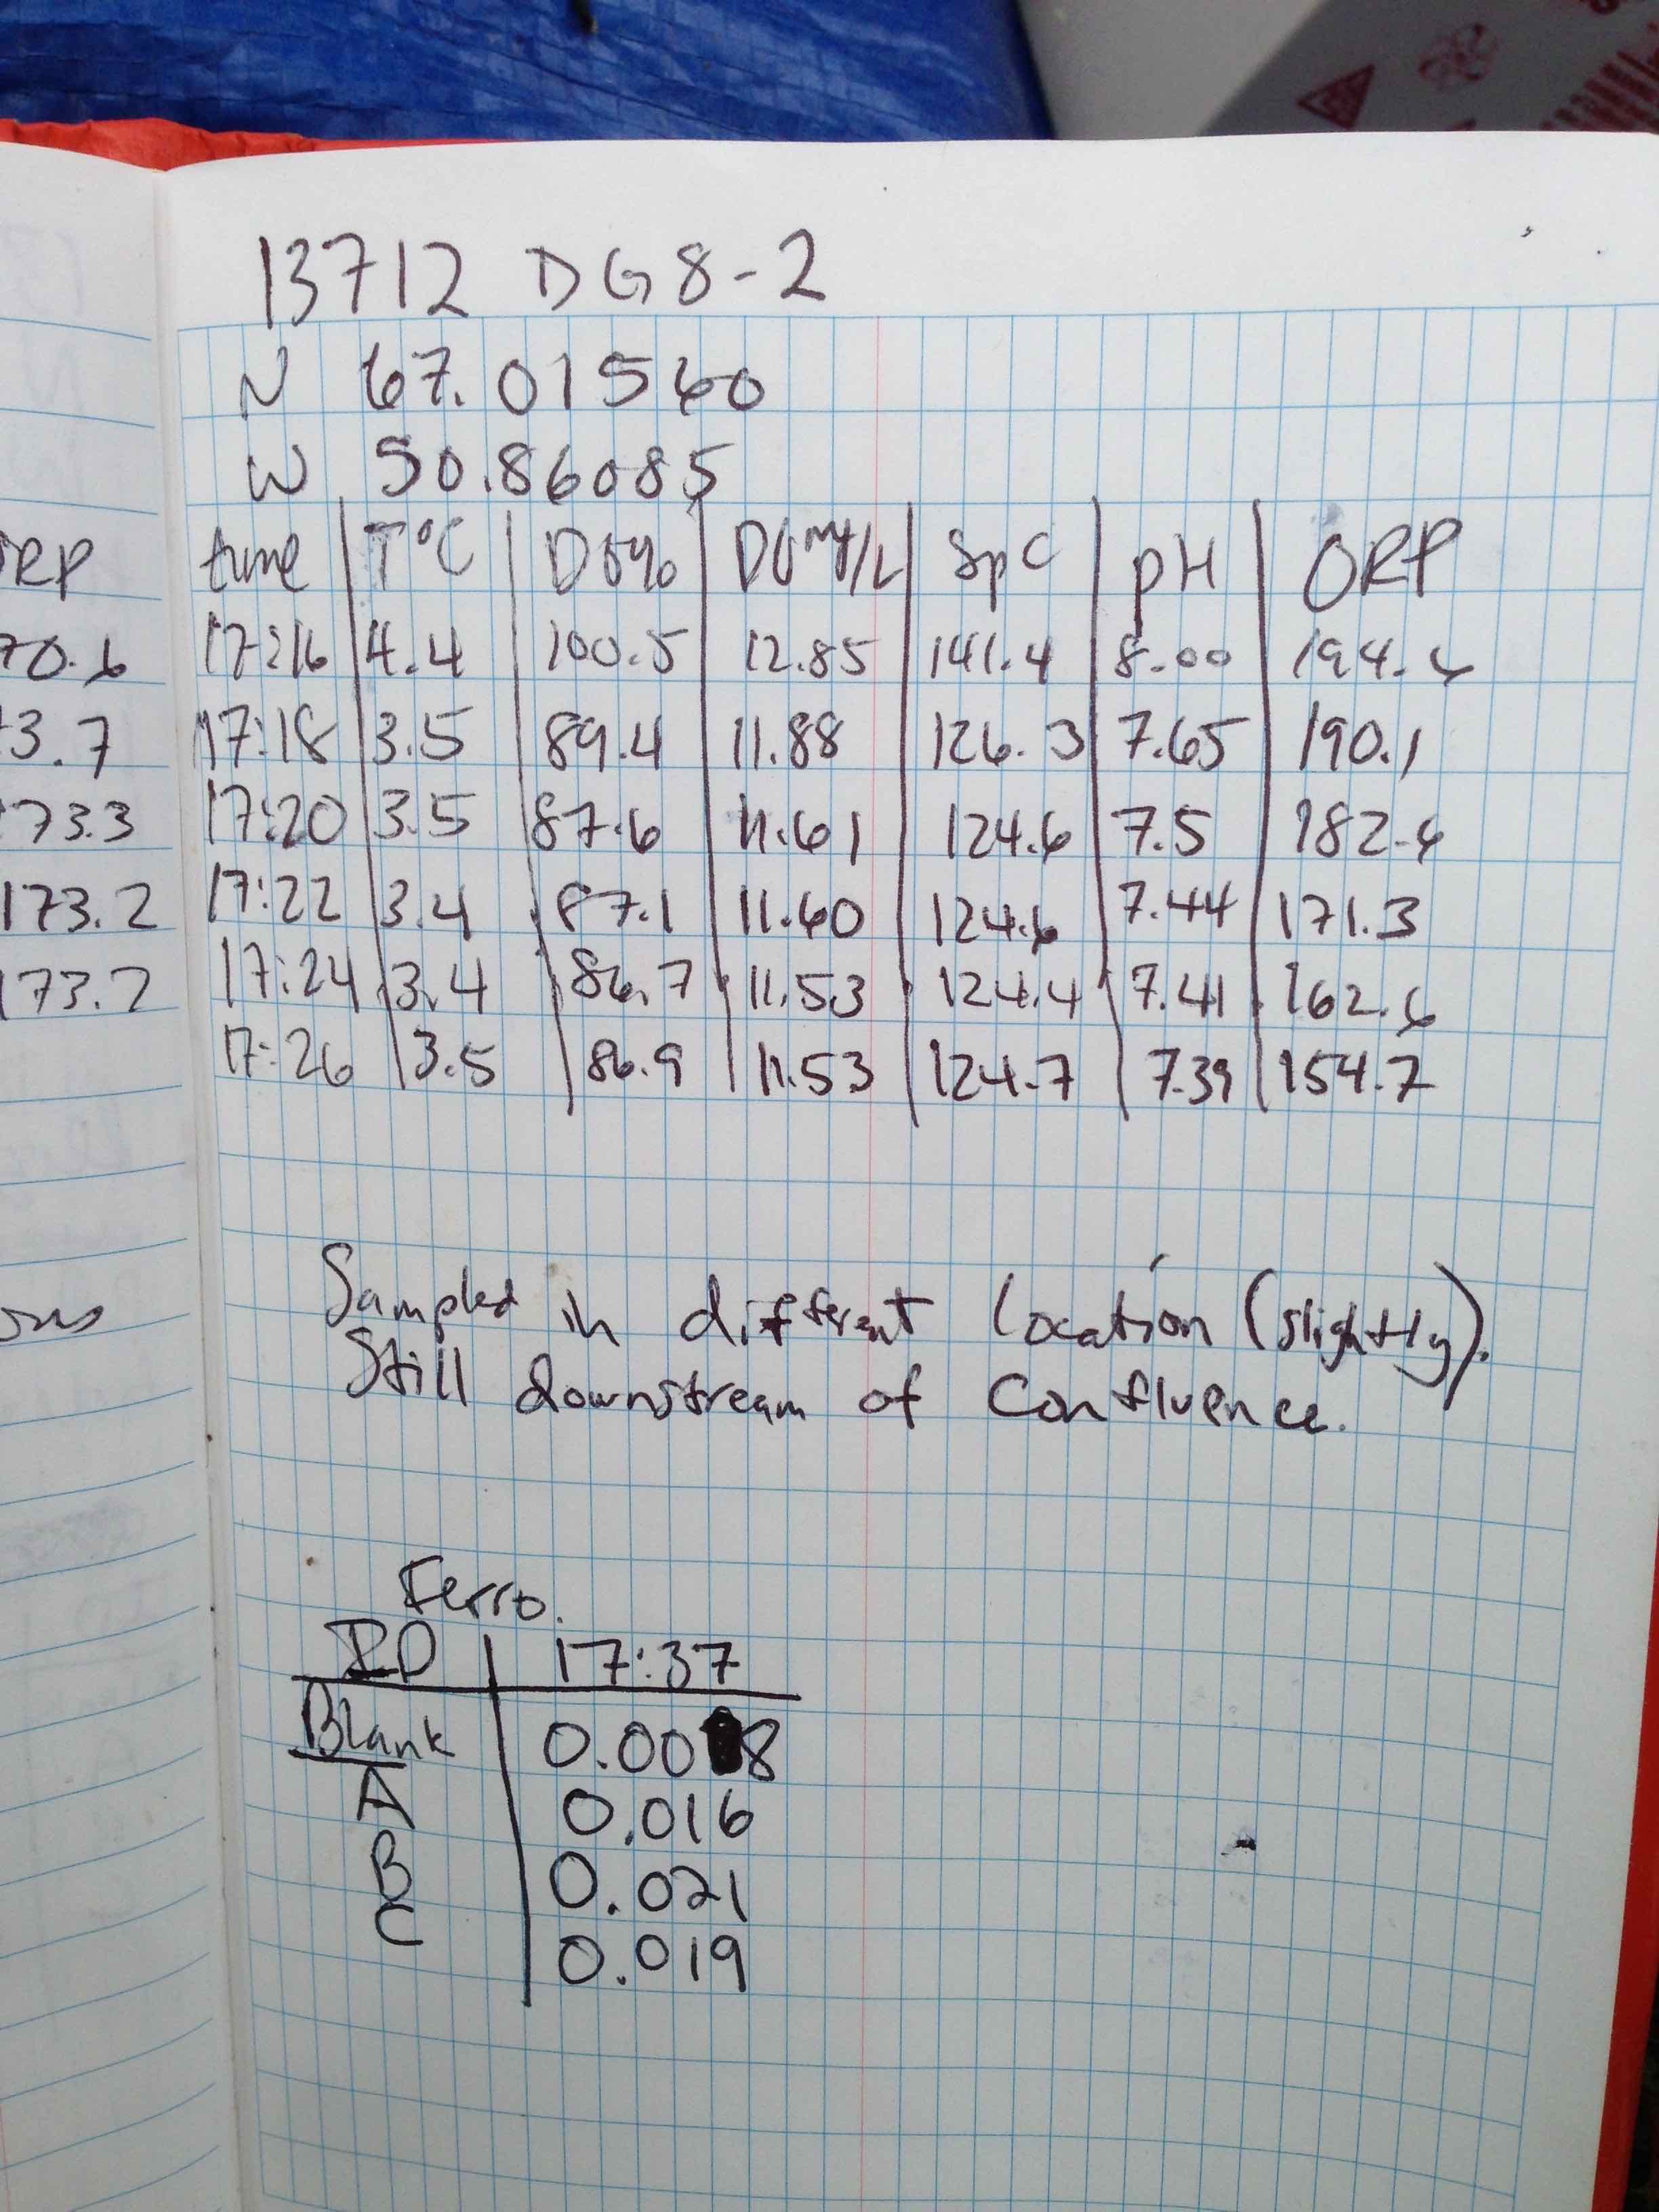 13712 DG8-2
N 67.01560
W 50.86085
RP time T°C DO% DO mg/L SpC pH ORP
70.6 17:16 4.4 100.5 12.85 141.4 8.00 194.6
3.7 17:18 3.5 89.4 11.88 126.3 7.65 190.1
73.3 17:20 3.5 87.6 11.61 124.6 7.5 182.6
173.2 17:22 3.4 87.1 11.60 124.6 7.44 171.3
173.2 17:24 3.4 86.7 11.53 124.4 7.41 162.6
17:26 3.5 86.9 11.53 124.7 7.39 154.7
Sampled in different location (slightly).
Still downstream of confluence.
Ferro.
ID 17:37
Blank 0.008
A 0.016
B 0.021
C 0.019